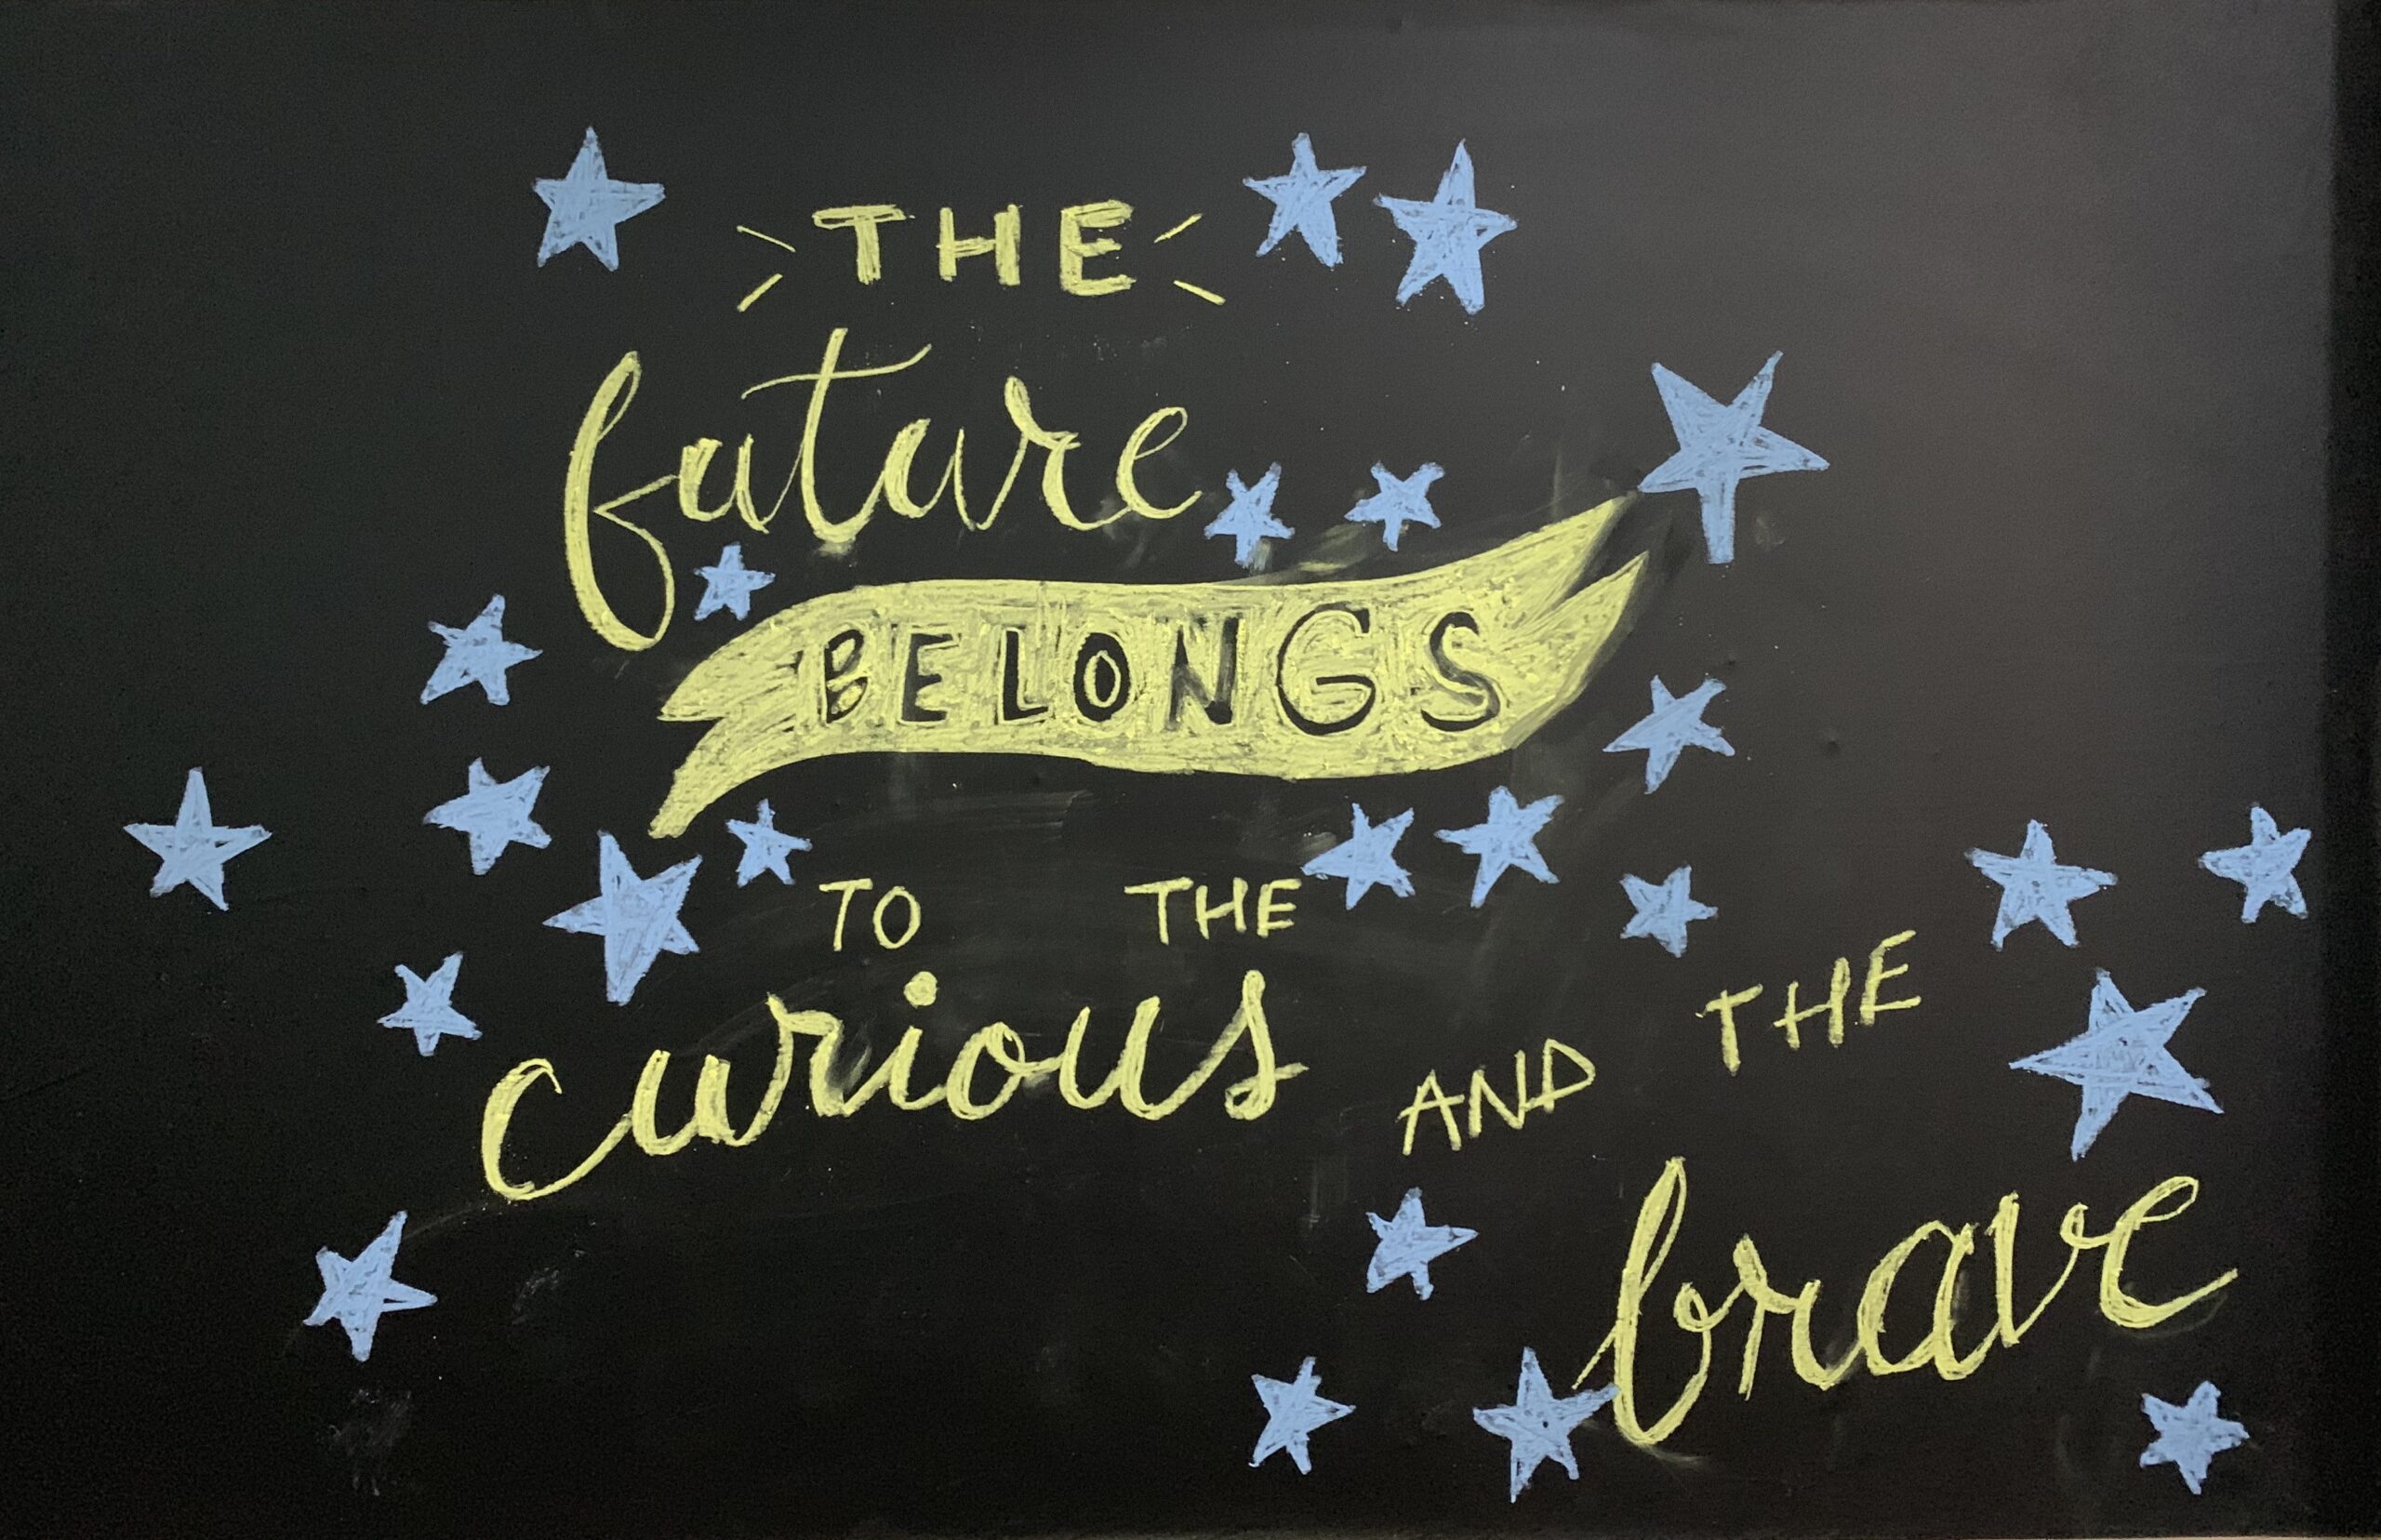 THE
future
BELONGS
TO THE
curious
AND THE
brave